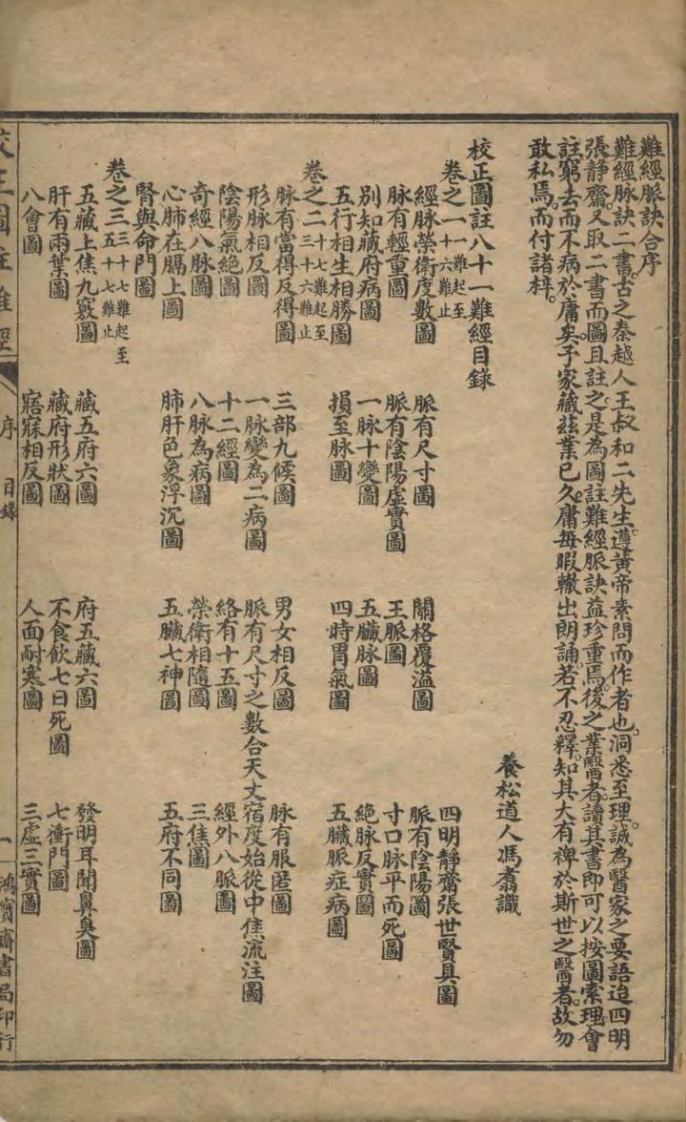 難經脈訣合序
難經脉訣二書古之秦越人王叔和二先生遵黃帝素問而作者也洞悉至理誠為醫家之要語迨四明
張静齋又取二書而圖且註之是為圖註難經脈訣益珍重焉後之業醫者讀其書即可以按圖索理會
註窮去而不病於庸矣予家藏玆業已久庸每暇轍出朗誦若不忍釋知其大有裨於斯世之醫者故勿
敢私焉而付諸梓
養松道人馮翥識
校正圖註八十一難經目錄
四明静齋張世賢具圖
卷之一 一難起至十六難止
經脉榮衛度數圖 脈有尺寸圖 關格覆溢圖 脈有陰陽圖
脉有輕重圖 脈有陰陽虛實圖 王脈圖 寸口脉平而死圖
別知藏府病圖 一脉十變圖 五臟脉圖 絶脉反實圖
五行相生相勝圖 損至脉圖 四時胃氣圖 五臟脈症病圖
卷之二 十七難起至三十六難止
脉有當得反得圖 三部九候圖 男女相反圖 脉有服匿圖
形脉相反圖 一脉變為二病圖 脈有尺寸之數合天文宿度始從中焦流注圖
陰陽氣絕圖 十二經圖 絡有十五圖 經外八脈圖
奇經八脉圖 八脉為病圖 榮衛相隨圖 三焦圖
心肺在膈上圖 肺肝色象浮沉圖 五臟七神圖 五府不同圖
腎與命門圖
卷之三 三十七難起至五十七難止
五藏上焦九竅圖 藏五府六圖 府五藏六圖 發明耳聞鼻臭圖
肝有兩葉圖 藏府形狀圖 不食飲七日死圖 七衝門圖
八會圖 寤寐相反圖 人面耐寒圖 三虛三實圖
校正圖註難經
序 目錄
一 鴻寶齋書局印行